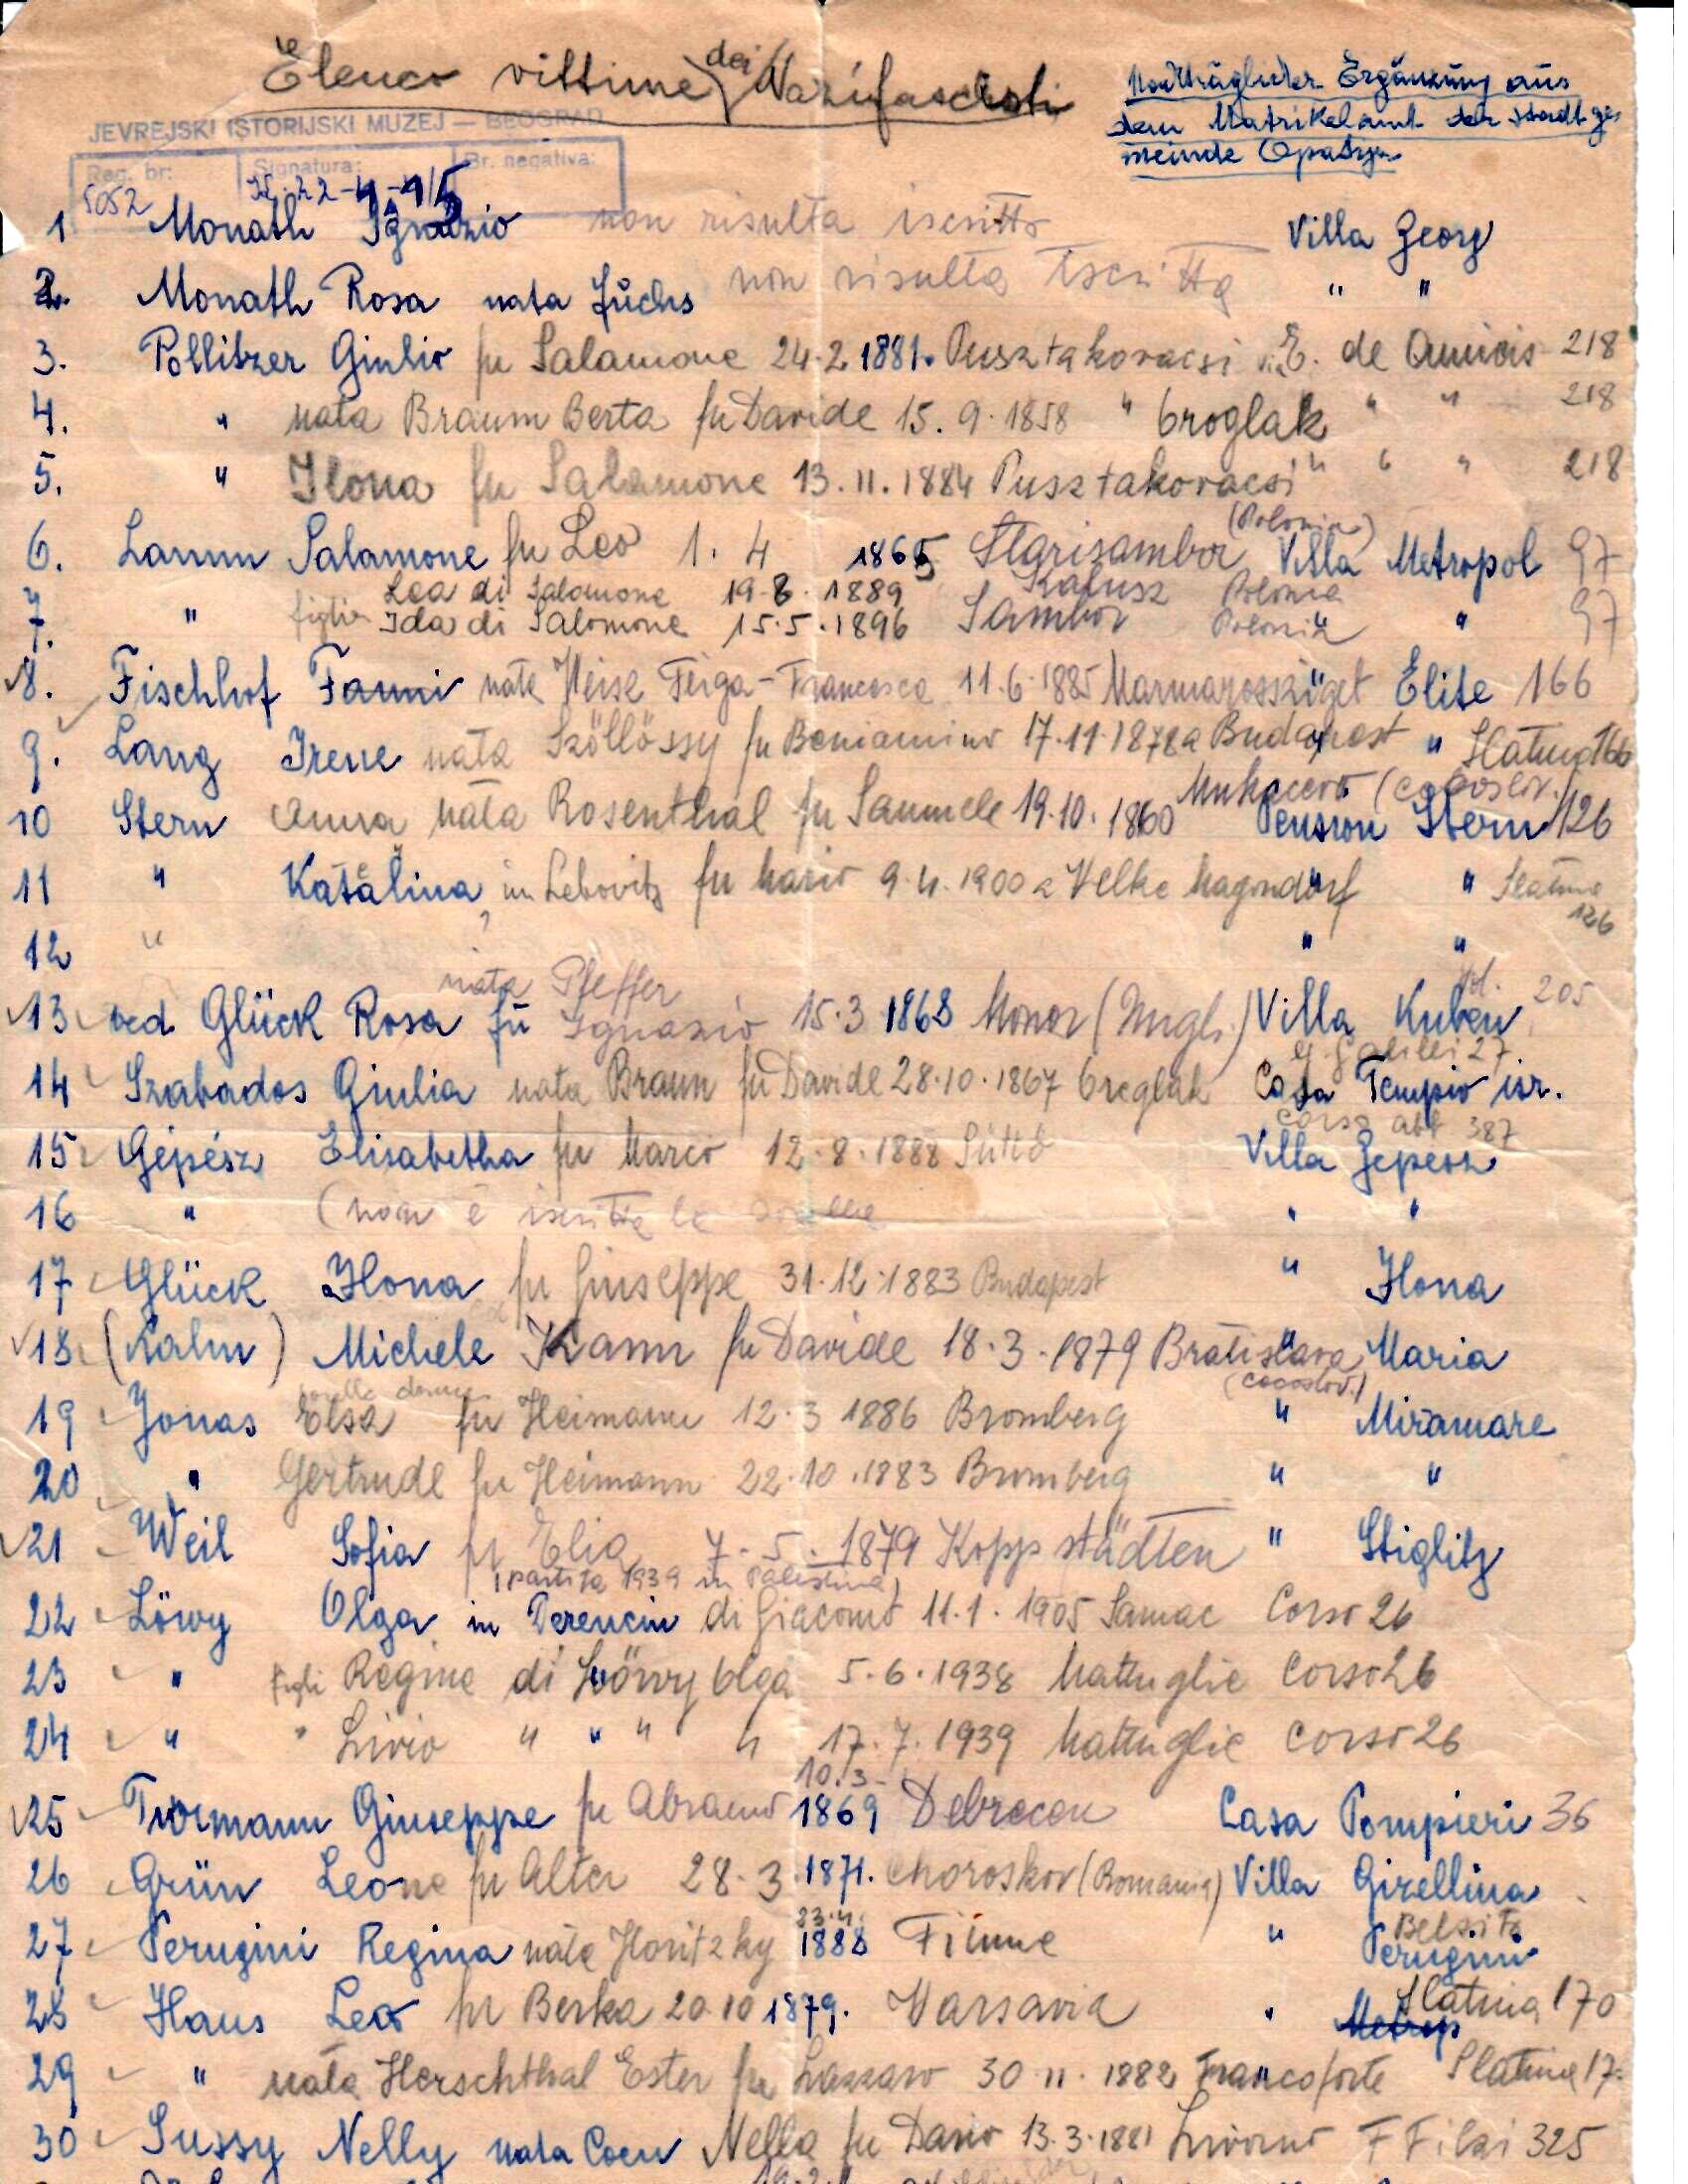 Elenco vittime dei Nazifascisti
Nachträglicher Ergänzung aus
dem Matrikelamt der Stadtge-
meinde Opatija
JEVREJSKI ISTORIJSKI MUZEJ — BEOGRAD
Reg. br: Signatura: Br. negativa:
5052
1 Monath Ignazio non risulta iscritto Villa Georg
2. Monath Rosa nata Fuchs non risulta iscritta " "
3. Pollitzer Giulio fu Salamone 24.2 1881. Pusztakovacsi E. de Amicis 218
4. " nata Braum Berta fu Davide 15.9.1858 " Öroglak " " 218
5. " Ilona fu Salamone 13.11.1884 Pusztakovacsi " " " 218
(Polonia)
6. Lamm Salamone fu Leo 1. 4 1865 Starisambor Villa Metropol 97
Lea di Salomone 19.8.1889 Kalusz Polonia
7. " figlia Ida di Salomone 15.5.1896 Sambor Polonia " 97
8. Fischhof Fanni nata Weise Feiga-Francesca 11.6.1885 Marmarossziget Elite 166
9. Lang Irene nata Szöllössy fu Beniamino 17.11.1878 a Budapest " Slatina 166
Mukacevo (Cecoslov.)
10 Stern Anna nata Rosenthal fu Samuele 19.10.1860 Pension Stern 126
11 " Katalina in Lebovitz fu Mario 9.4.1900 a Velke Magendorf " Slatina
126
12 " " "
nata Pfeffer 205
13 ved Glück Rosa fu Ignazio 15.3 1868 Monor (Ungh.) Villa Kuben
G Galilei 27
14 Szabados Giulia nata Braun fu Davide 28.10.1867 Öreglak Casa Tempio isr.
Corso 387
15 Gépész Elisabetha fu Marco 12.8.1888 Süttö Villa Gepesz
16 " (non è iscritta la sorella " "
17 Glück Ilona fu Giuseppe 31.12.1883 Budapest " Ilona
18 (Kalm) Michele Kann fu Davide 18.3.1879 Bratislava " Maria
(Cecoslov.)
19 Jonas Elsa fu Heimann 12.3 1886 Bromberg " Miramare
20 " Gertrude fu Heimann 22.10.1883 Bromberg " "
21 Weil Sofia fu Elia 7.5.1879 Koppstädten " Stiglitz
(partita 1939 in Palestina)
22 Löwy Olga in Derencin di Giacomo 11.1.1905 Samac Corso 26
23 " figli Regina di Löwy Olga 5.6.1938 Mattuglie Corso 26
24 " " Livio " " " " 17.7.1939 Mattuglie Corso 26
10.3-
25 Turmann Giuseppe fu Abramo 1869 Debrecen Casa Pompieri 36
26 Grün Leone fu Alter 28.3.1871. Choroskov (Romania) Villa Girellina
23.4. Belsito
27 Perugini Regina nata Horitzky 1888 Fiume " Perugini
Slatina 170
28 Haus Leo fu Berka 20.10 1879. Varsavia " Metrop
29 " nata Herschthal Ester fu Lazzaro 30.11.1882 Francoforte " Slatina 17
30 Sussy Nelly nata Coen Nella fu Dario 13.3.1881 Livorno F Filzi 325